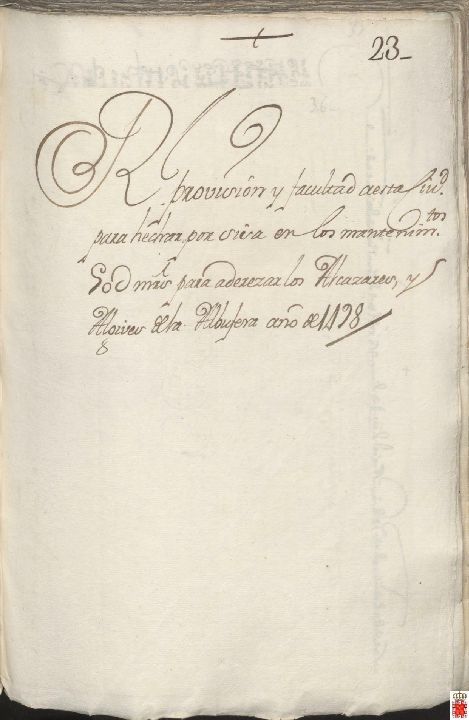 23_
Rl
provission y facultad a esta Ciud.
para hechar por sisa en los mantenimtos.
mrs para aderezar los Alcazares, y
Algives de la Albufera año de 1498